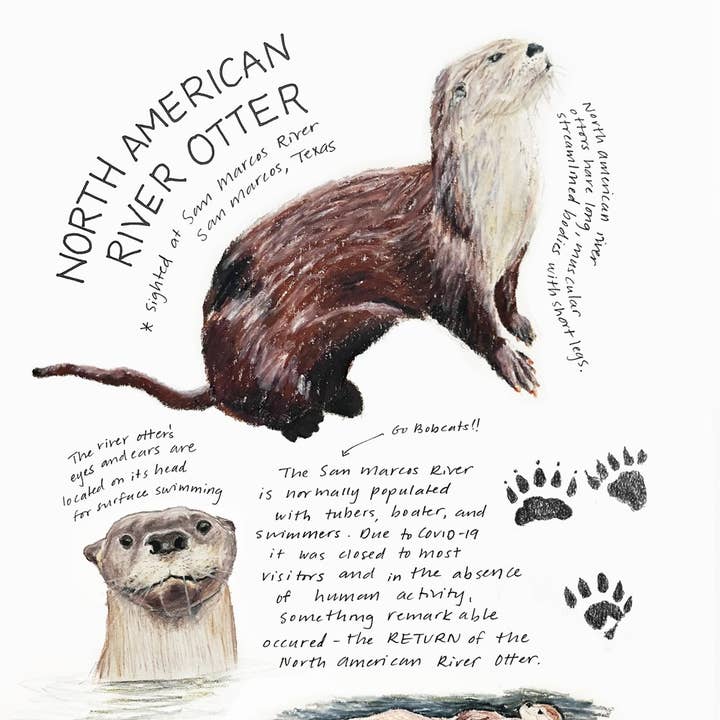 NORTH AMERICAN
RIVER OTTER
* sighted at San Marcos River
San Marcos, Texas
North american river
otters have long,
streamlined bodies, muscular
with short legs.
The river otter's
eyes and ears are
located on its head
for surface swimming
Go Bobcats!!
The San Marcos River
is normally populated
with tubers, boater, and
swimmers. Due to COVID-19
it was closed to most
visitors and in the absence
of human activity,
something remarkable
occured - the RETURN of the
North American River Otter.